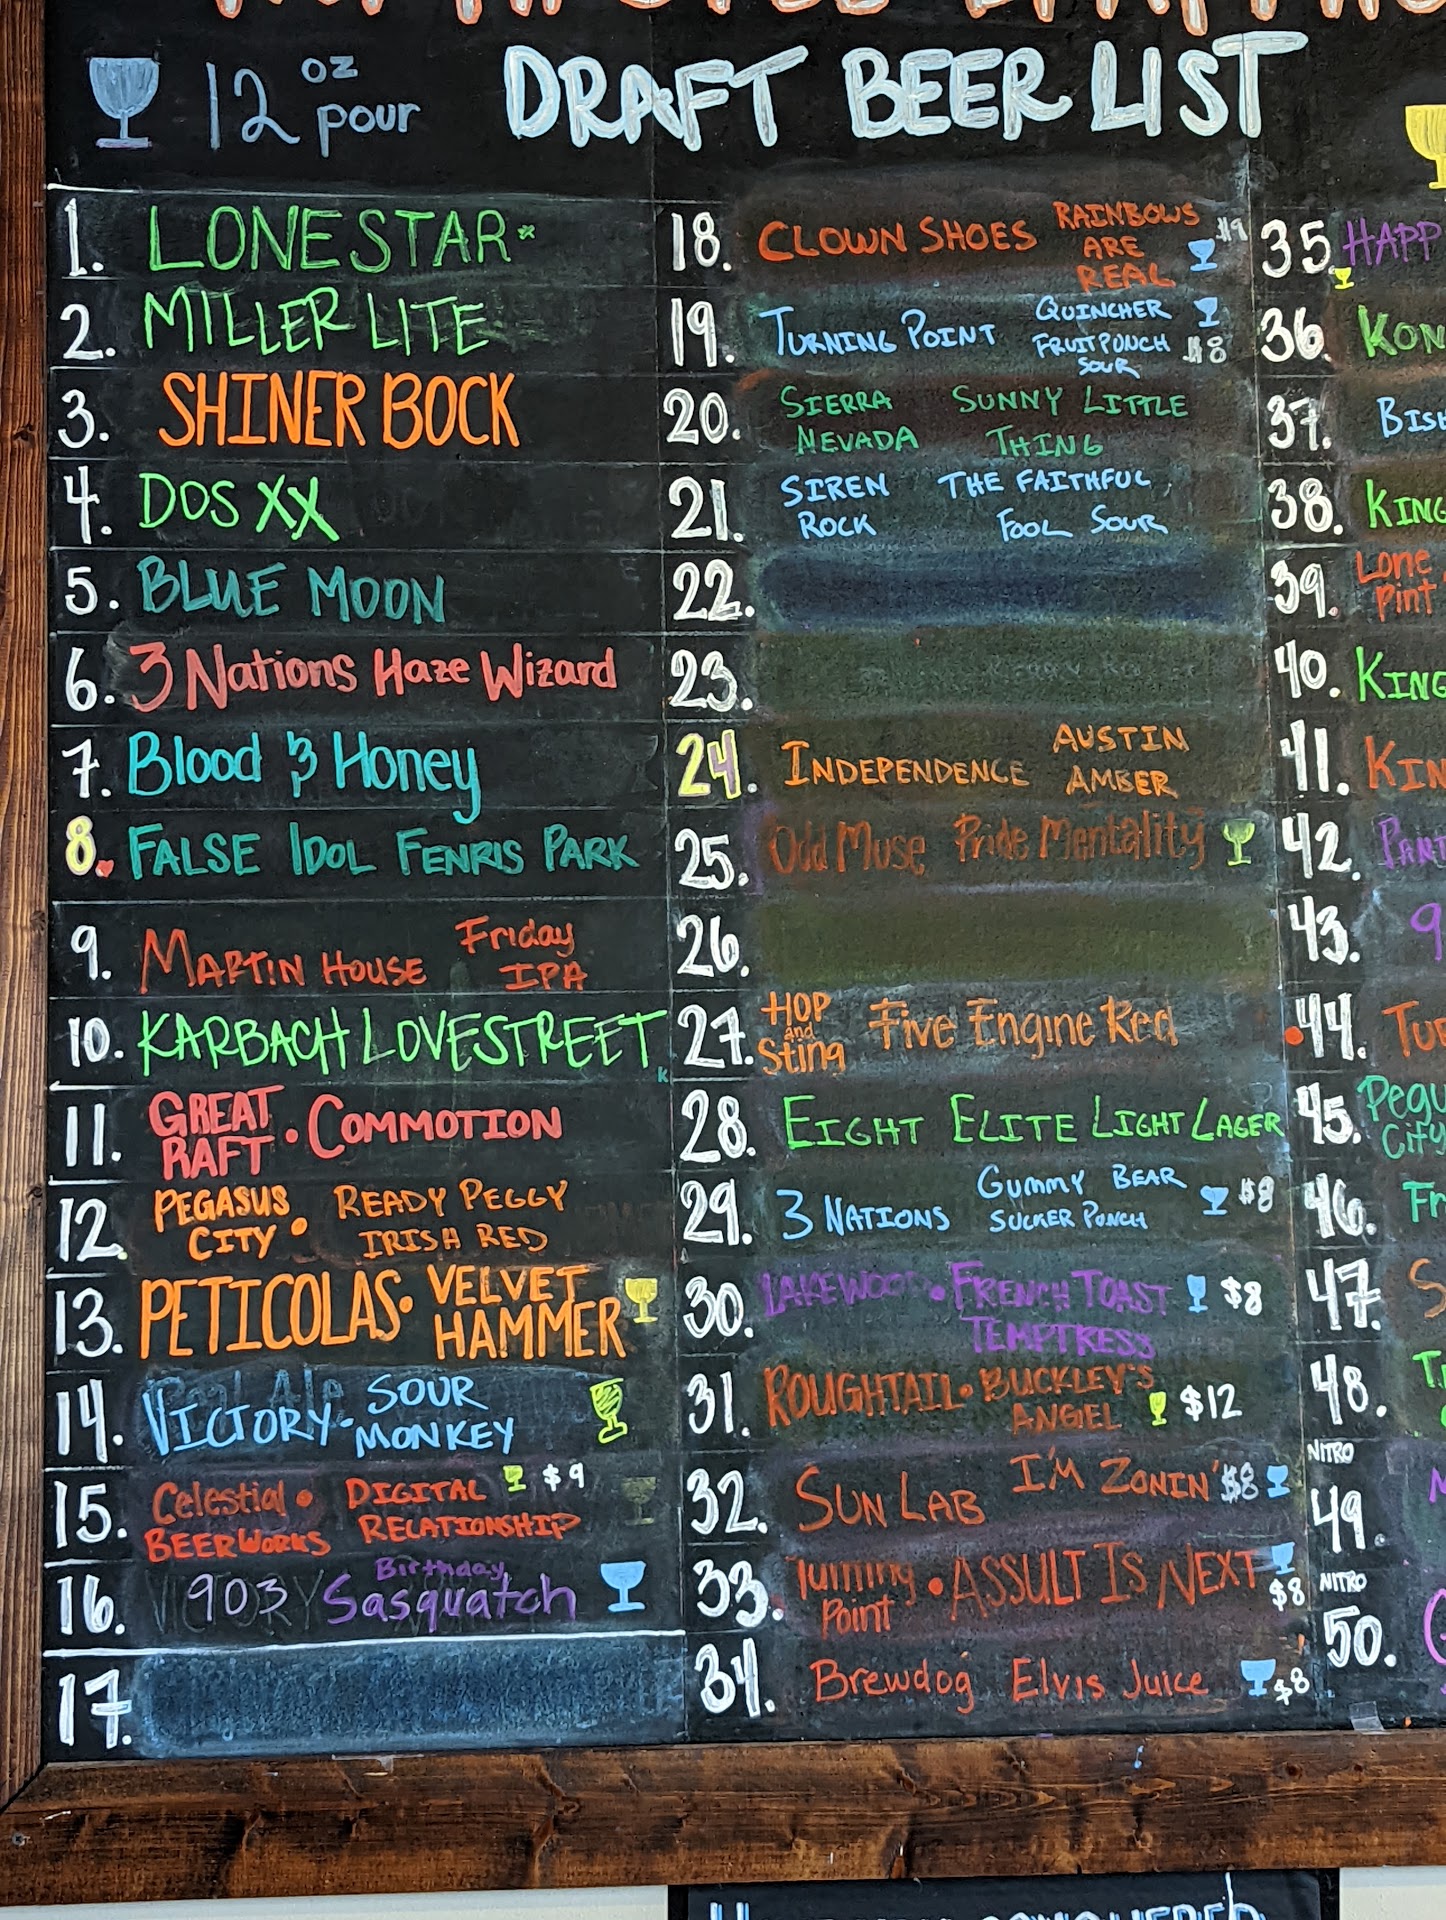 12 oz pour
DRAFT BEER LIST
1. LONESTAR*
2. MILLER LITE
3. SHINER BOCK
4. DOS XX
5. BLUE MOON
6. 3 Nations Haze Wizard
7. Blood & Honey
8. FALSE IDOL FENRIS PARK
9. MARTIN HOUSE Friday IPA
10. KARBACH LOVESTREET
11. GREAT RAFT • COMMOTION
12. PEGASUS CITY • READY PEGGY IRISH RED
13. PETICOLAS • VELVET HAMMER
14. VICTORY - SOUR MONKEY
15. Celestial • BEERWORKS DIGITAL RELATIONSHIP $9
16. 903 Birthday Sasquatch
17.
18. CLOWN SHOES RAINBOWS ARE REAL $9
19. TURNING POINT QUINCHER FRUIT PUNCH SOUR $8
20. SIERRA NEVADA SUNNY LITTLE THING
21. SIREN ROCK THE FAITHFUL FOOL SOUR
22.
23.
24. INDEPENDENCE AUSTIN AMBER
25. Odd Muse Pride Mentality
26.
27. HOP and Sting Five Engine Red
28. EIGHT ELITE LIGHT LAGER
29. 3 NATIONS GUMMY BEAR SUCKER PUNCH $8
30. LAKEWOOD • FRENCH TOAST TEMPTRESS $8
31. ROUGHTAIL • BUCKLEY'S ANGEL $12
32. SUN LAB I'M ZONIN' $8
33. Turning Point • ASSULT IS NEXT $8
34. Brewdog Elvis Juice $8
35. HAPP
36. KON
37. BIS
38. KING
39. Lone Pint
40. KING
41. KIN
42. PANT
43. 9
44. TU
45. Pegu City
46. Fr
47. S
48. T
NITRO
49.
NITRO
50.